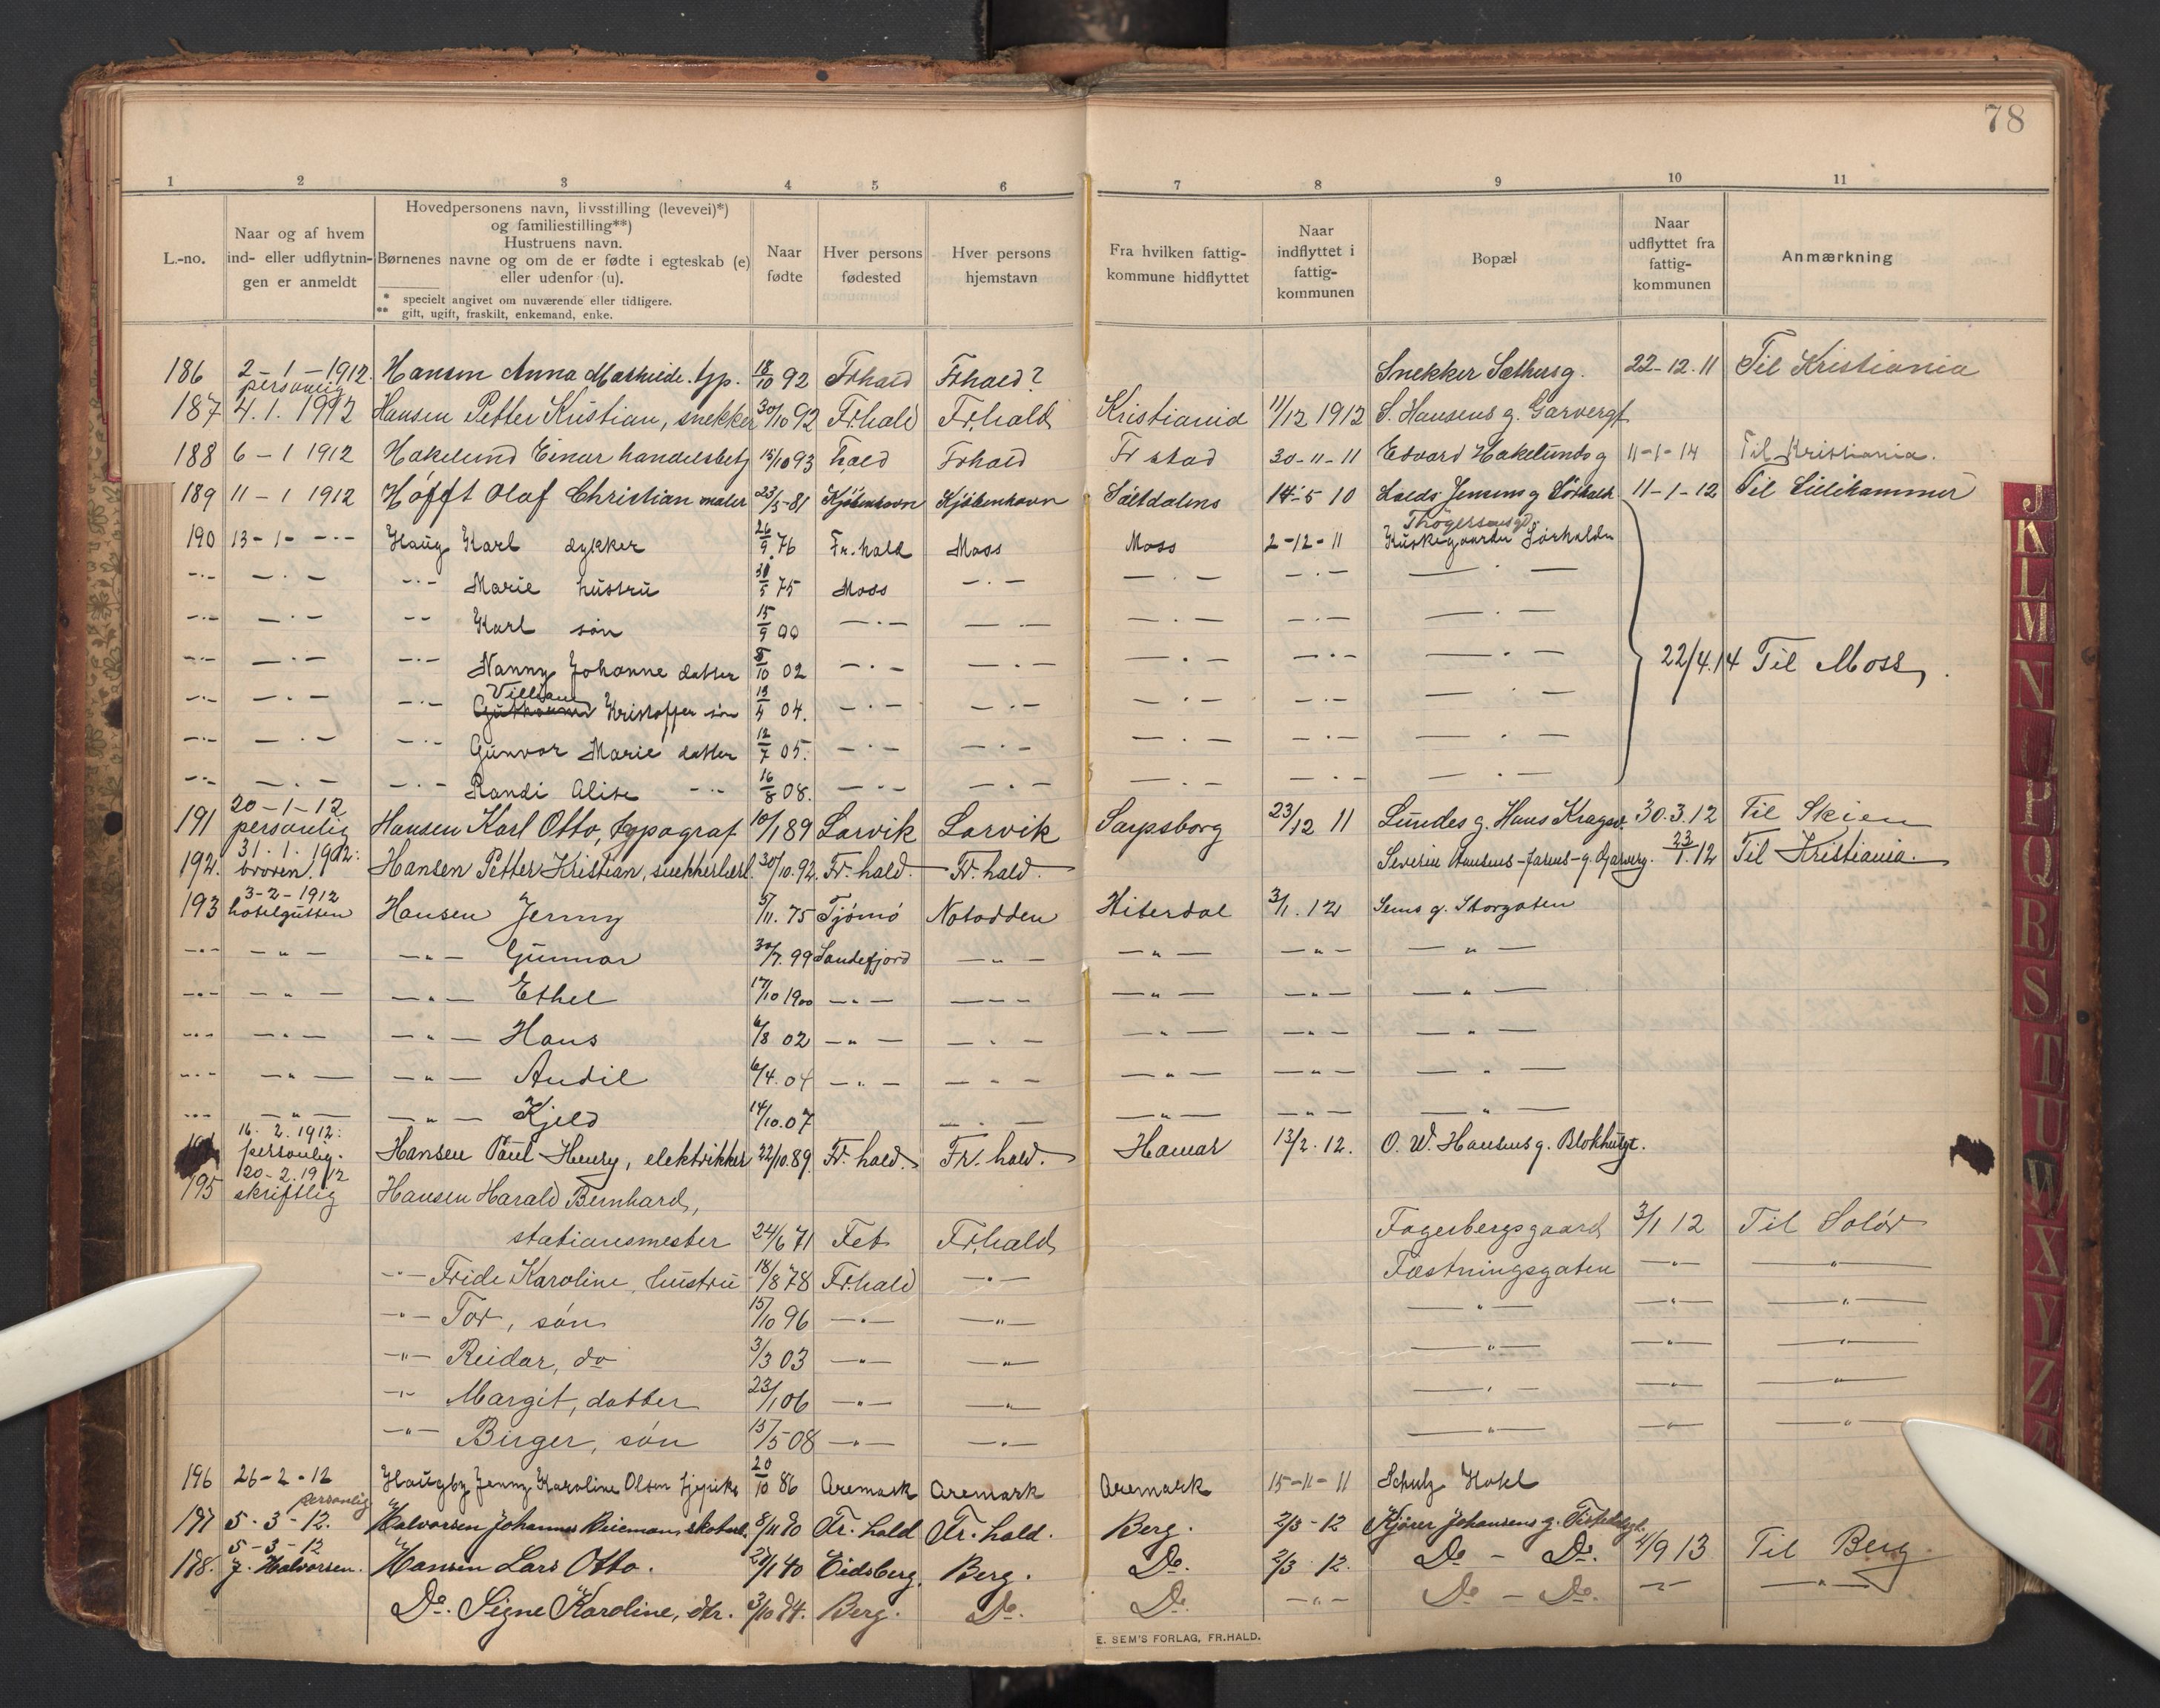 78
1 2 3 4 5 6 7 8 9 10 11
L.-no.
Naar og af hvem
ind- eller udflytnin-
gen er anmeldt
Hovedpersonens navn, livsstilling (levevei)*)
og familiestilling**)
Hustruens navn.
Børnenes navne og om de er fødte i egteskab (e)
eller udenfor (u).
* specielt angivet om nuværende eller tidligere.
** gift, ugift, fraskilt, enkemand, enke.
Naar
fødte
Hver persons
fødested
Hver persons
hjemstavn
Fra hvilken fattig-
kommune hidflyttet
Naar
indflyttet i
fattig-
kommunen
Bopæl
Naar
udflyttet fra
fattig-
kommunen
Anmærkning
186 2-1-1912 personlig Hansen Anna Mathilde 18/10 92 Frhald Frhald? Snekker Sæthers g. 22-12.11 Til Kristiania
187 4.1.1912 Hansen Petter Kristian, snekker 30/10 92 Fr.hald Fr.hald Kristiania 11/12 1912 S. Hansens g. Garvergt
188 6-1 1912 Hakelund Einar handelsbetj 15/10 93 Fr.hald Frhald Frstad 30-11-11 Edvard Hakelunds g 11-1-14 Til Kristiania.
189 11-1 1912 Höfft Olaf Christian maler 23/5-81 Kjöbenhavn Kjöbenhavn Saltdalens 14-5 10 Jensens g 11-1-12 Til Lillehammer
190 13-1- -·- Haug Karl dykker 26/9 76 Fr.hald Moss Moss 2-12-11 Thøgersens gd Sørhalden
-·- -·- -·- Marie hustru 30/5 75 Moss -·- -·- -·- -·-
-·- -·- -·- Karl søn 15/9 00 -·- -·- -·- -·- -·-
-·- -·- -·- Nanny Johanne datter 8/10 02 -·- -·- -·- -·- -·- 22/4.14 Til Moss.
-·- -·- -·- Villiam Kristoffer søn 13/4 04. -·- -·- -·- -·- -·-
-·- -·- -·- Gunvor Marie datter 12/7 05. -·- -·- -·- -·- -·-
-·- -·- -·- Randi Alise -·- 16/8 08. -·- -·- -·- -·- -·-
191 20-1-12 personlig Hansen Karl Otto, typograf 10/1 89 Larvik Larvik Sarpsborg 23/12 11 Lundes g. Hans Kragsv. 30.3.12 Til Skien
192. 31.1.1912: broren. Hansen Petter Kristian, snekkerlærl. 30/10.92. Fr.hald. Fr.hald. Severin Hansens g. Garverg. 23/1.12 Til Kristiania.
193 3-2-1912 hotelgutten Hansen Jenny 5/11.75 Tjømø Notodden Hiterdal 3/1.12 Sems g. Storgaten
-"- -"- -"- Gunnar 30/7.99 Sandefjord -"- -"- -"- -"-
-"- -"- -"- Ethel 17/10 1900 -"- -"- -"- -"- -"-
-"- -"- -"- Hans 6/8 02 -"- -"- -"- -"- -"-
-"- -"- -"- Audil 6/4.04 -"- -"- -"- -"- -"-
-"- -"- -"- Kjeld 14/10.07 -"- -"- -"- -"-
16.2.1912: personlig. Hansen Paul Henry, elektrikker 22/10.89. Fr.hald. Fr.hald. Hamar 13/2.12. O. W. Hansens g. Blokhusgt.
195 20-2.1912 skriftlig Hansen Harald Bernhard,
stationsmester 24/6 71 Fet Fr.hald Fagerbergsgaard 3/1 12 Til Solør
-"- Fride Karoline, hustru 18/8 78 Fr.hald -"- Fæstningsgaten -"- -"-
-"- Tor, søn 15/10 96 -"- -"- -"- -"- -"-
-"- Reidar, do 3/3 03 -"- -"- -"- -"- -"-
-"- Margit, datter 23/1 06 -"- -"- -"- -"- -"-
-"- Birger, søn 15/5 08 -"- -"- -"- -"- -"-
196 26-2-12 Haugby Jenny Karoline Olsen 20/10 86 Aremark Aremark Aremark 15-11-11 Schulz Hotel
197 5-3-12. personlig Halvorsen Johannes 8/11 80 Fr.hald Fr.hald. Berg. 2/3-12 Johansens g.
198. 5-3-12 J. Halvorsen. Hansen Lars Otto. 40 Eidsberg. Berg. Do. 2/3.12. Do - Do. 4/9 13 Til Berg
Do. Signe Karoline, dtr. 3/10 84. Berg. Do. Do. -"- Do - Do. -"- -"-
E. SEM'S FORLAG, FR.HALD.
J
K
L
M
N
O
P
Q
R
S
T
U
W
X
Y
Z